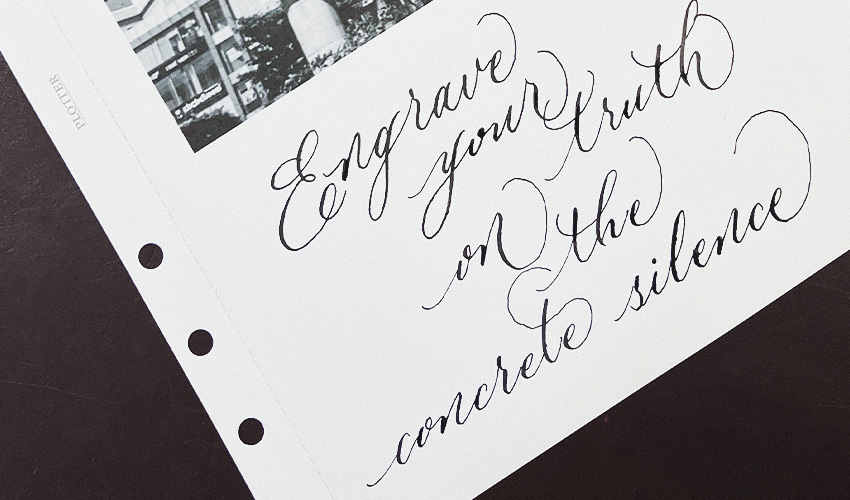 PLOTTER
Engrave
your truth
on the
concrete silence